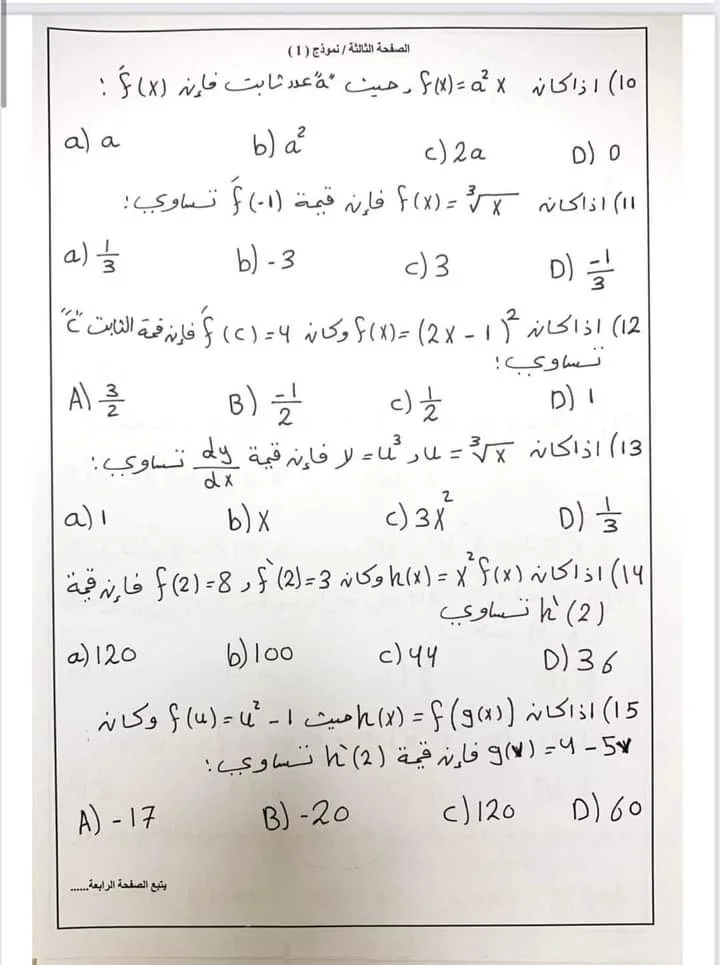 الصفحة الثالثة / نموذج (1)
10) اذا كان f(x) = a² x , حيث "a" عدد ثابت فإن f́(x) :
a) a b) a² c) 2a D) 0
11) اذا كان f(x) = ∛x فإن قيمة f́(-1) تساوي :
a) 1/3 b) -3 c) 3 D) -1/3
12) اذا كان f(x) = (2x - 1)² وكان f́(c) = 4 فإن قمة الثابت "c"
تساوي :
A) 3/2 B) -1/2 c) 1/2 D) 1
13) اذا كان u = ∛x , y = u³ فإن قيمة dy/dx تساوي :
a) 1 b) x c) 3x² D) 1/3
14) اذا كان h(x) = x² f(x) وكان f`(2) = 3 , f(2) = 8 فإن قيمة
h`(2) تساوي
a) 120 b) 100 c) 44 D) 36
15) اذا كان h(x) = f(g(x)) حيث f(u) = u² - 1 وكان
g(x) = 4 - 5x فإن قيمة h`(2) تساوي :
A) -17 B) -20 c) 120 D) 60
يتبع الصفحة الرابعة......